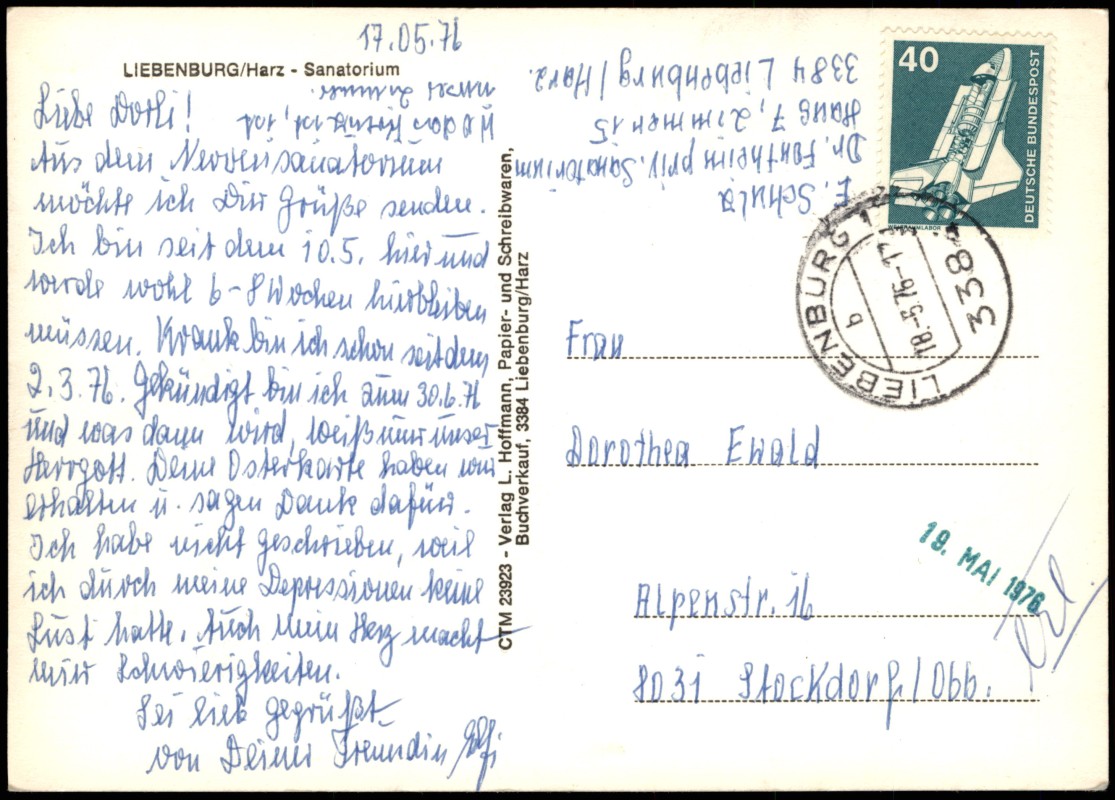 17.05.76
LIEBENBURG/Harz - Sanatorium
Liebe Dorli!
Aus dem Nervensanatorium
möchte ich Dir Grüße senden.
Ich bin seit dem 10.5. hier und
werde wohl 6-8 Wochen hierbleiben
müssen. Krank bin ich schon seit dem
2.3.76. Gekündigt bin ich zum 30.6.76
und was dann wird, weiß nur unser
Herrgott. Deine Osterkarte haben wir
erhalten u. sagen Dank dafür.
Ich habe nicht geschrieben, weil
ich durch meine Depressionen keine
Lust hatte. Auch mein Herz macht
mir Schwierigkeiten.
Sei lieb gegrüßt
von Deiner Freundin Elfi
wo das ist, ist
unser Zimmer.
CTM 23923 - Verlag L. Hoffmann, Papier- und Schreibwaren,
Buchverkauf, 3384 Liebenburg/Harz
E. Schulz
Dr. Fontheim priv. Sanatorium
Haus 7, Zimmer 15
3384 Liebenburg/Harz.
40
DEUTSCHE BUNDESPOST
WELTRAUMLABOR
LIEBENBURG 1
b
18.-5.76-17
338
Frau
Dorothea Ewald
Alpenstr. 16
8031 Stockdorf/Obb.
19. MAI 1976